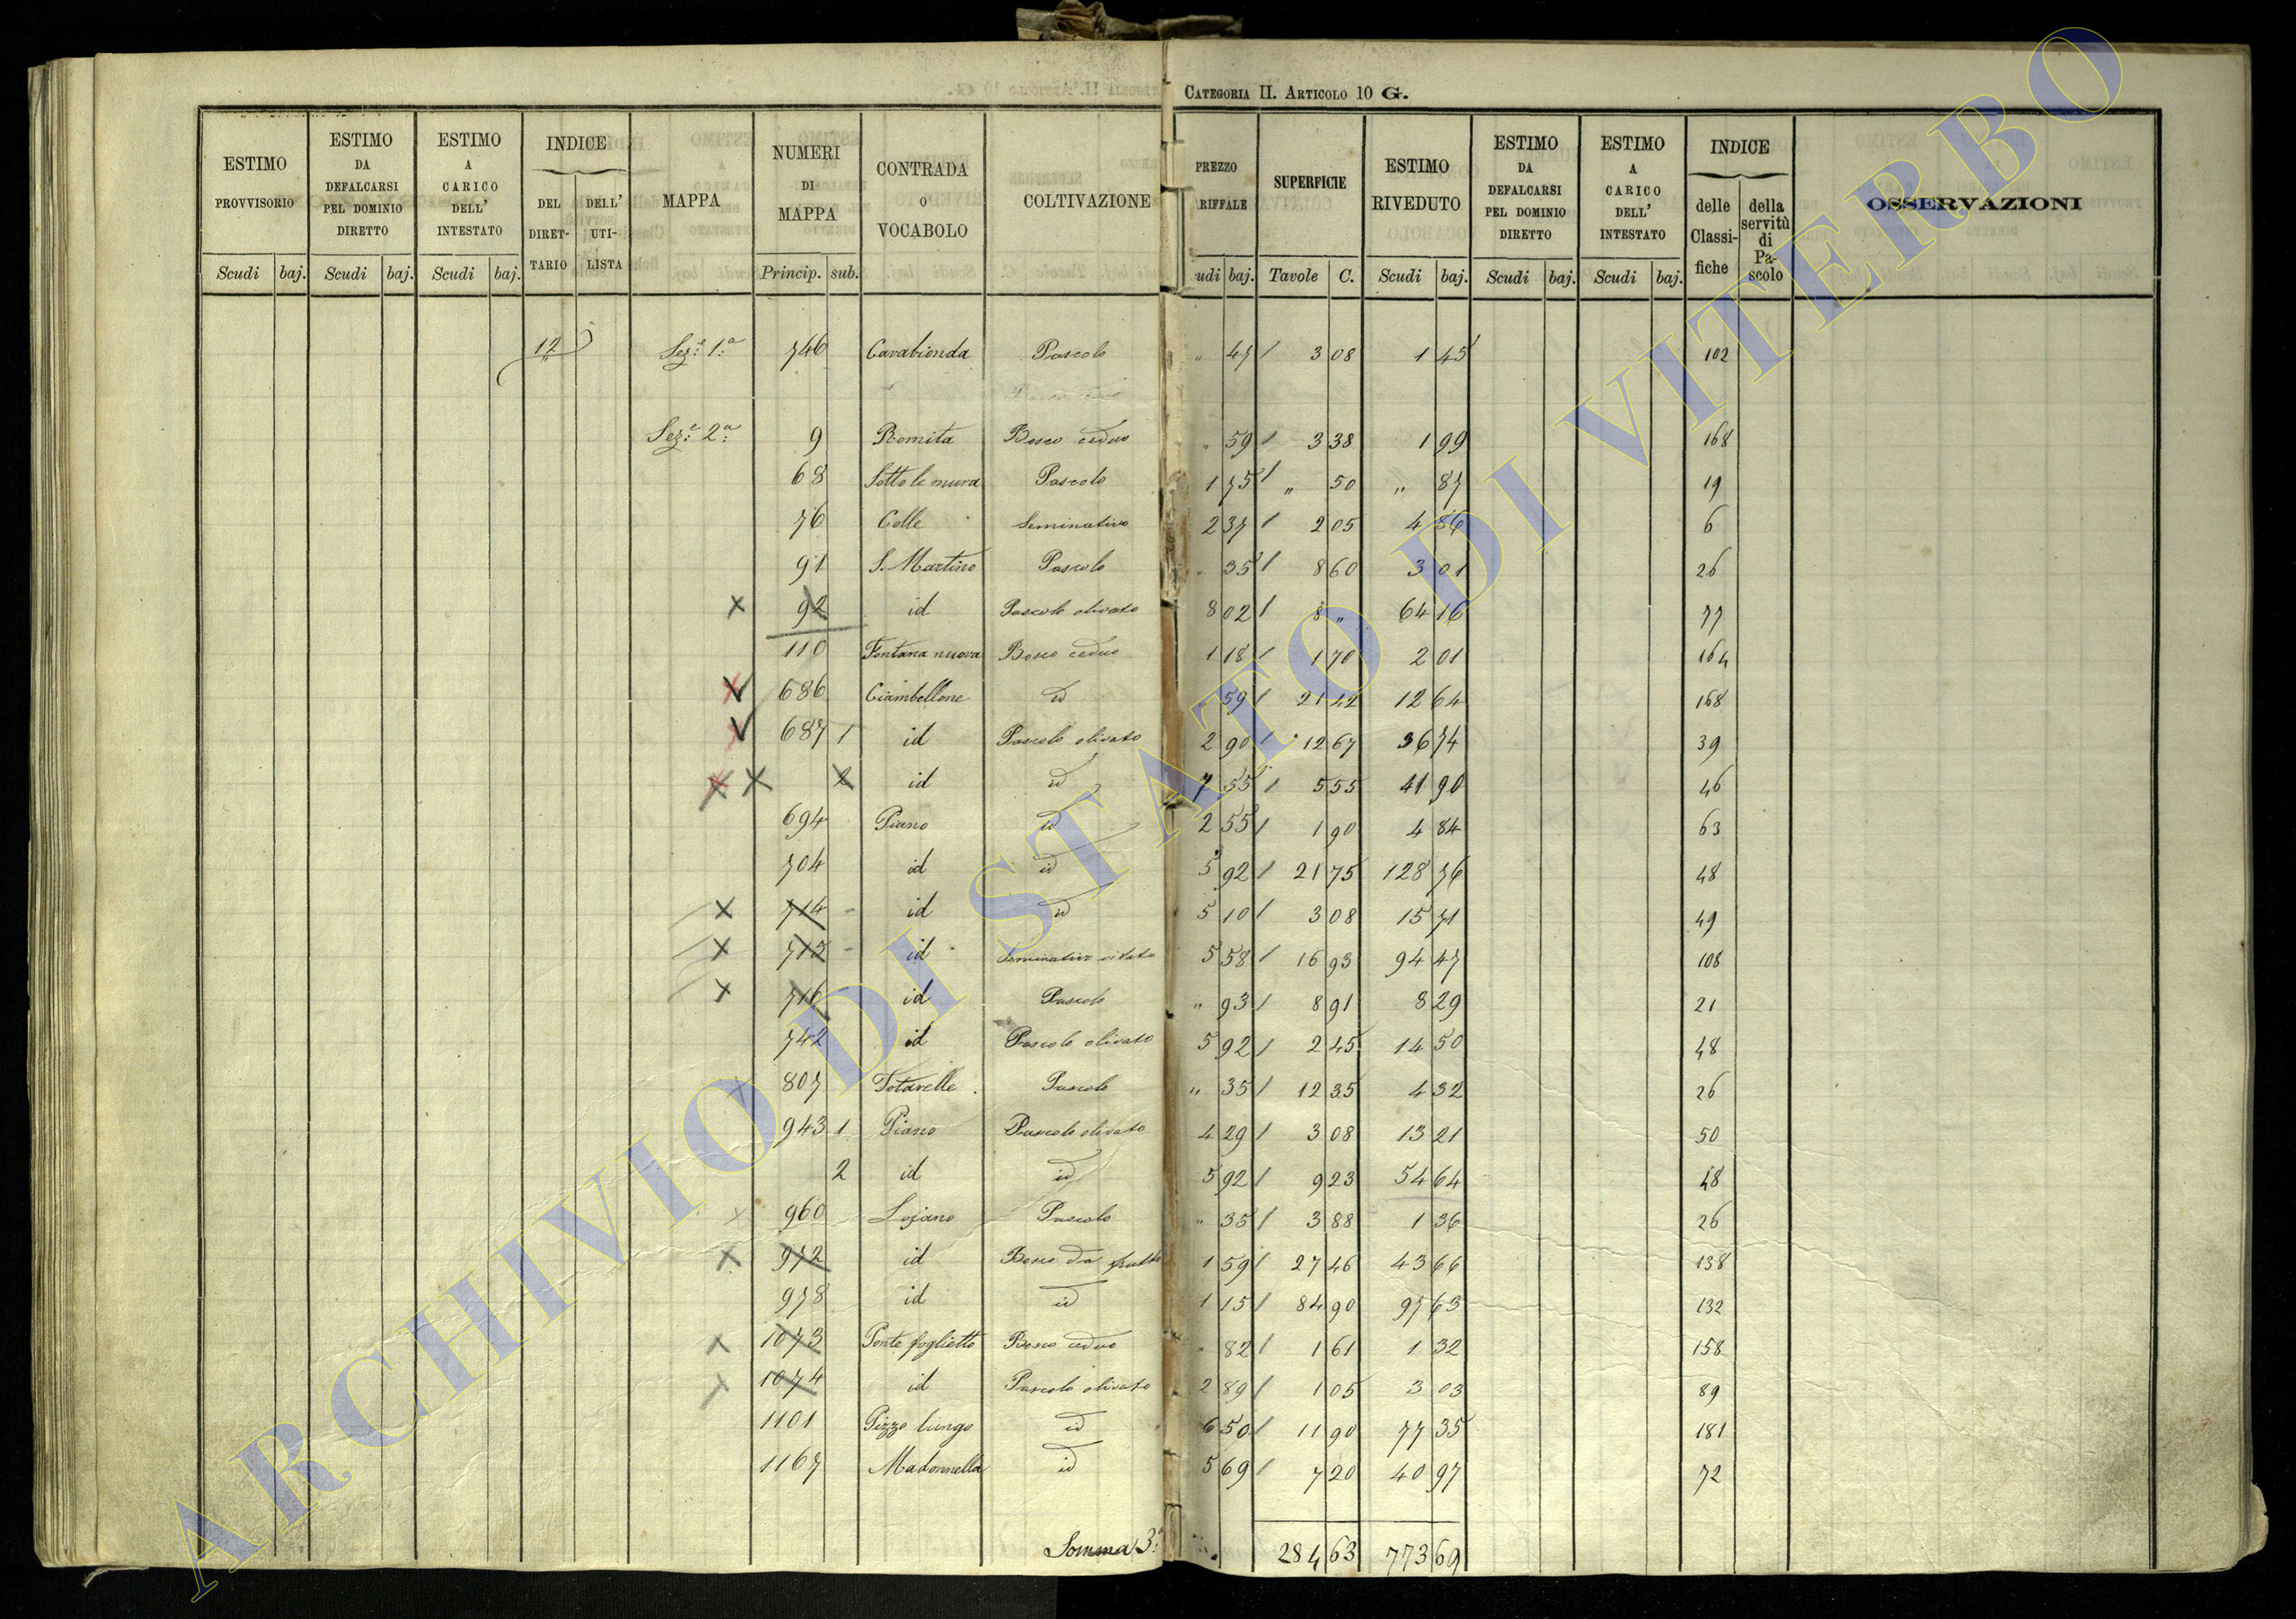 CATEGORIA II. ARTICOLO 10 G.
ESTIMO PROVVISORIO | ESTIMO DA DEFALCARSI PEL DOMINIO DIRETTO | ESTIMO A CARICO DELL' INTESTATO | INDICE DEL DIRET-TARIO | DELL' UTI-LISTA | MAPPA | NUMERI DI MAPPA | CONTRADA O VOCABOLO | COLTIVAZIONE | PREZZO RIFFALE | SUPERFICIE | ESTIMO RIVEDUTO | ESTIMO DA DEFALCARSI PEL DOMINIO DIRETTO | ESTIMO A CARICO DELL' INTESTATO | INDICE delle Classi-fiche | della servitù di Pa-scolo | OSSERVAZIONI
Scudi baj. Scudi baj. Scudi baj. Princip. sub. udi baj. Tavole C. Scudi baj. Scudi baj. Scudi baj.
12 Sez.e 1.a 746 Cavabionda Pascolo " 47 3 08 1 45 102
Sez.e 2.a 9 Romita Bosco ceduo " 59 3 38 1 99 168
68 Sotto le mura Pascolo 1 75 " 50 " 87 19
76 Colle Seminativo 2 37 2 05 4 86 6
91 S. Martino Pascolo " 35 8 60 3 01 26
92 id Pascolo olivato 8 02 8 " 64 16 77
110 Fontana nuova Bosco ceduo 1 18 1 70 2 01 164
686 Ciambellone id " 59 21 42 12 64 168
687 1 id Pascolo olivato 2 90 12 67 36 74 39
2 id id 7 55 5 55 41 90 46
694 Piano id 2 55 1 90 4 84 63
704 id id 5 92 21 75 128 76 48
714 id id 5 10 3 08 15 71 49
id Seminativo vitato 5 58 16 93 94 47 108
716 id Pascolo " 93 8 91 8 29 21
742 id Pascolo olivato 5 92 2 45 14 50 48
807 Totarelle Pascolo " 35 12 35 4 32 26
943 1 Piano Pascolo olivato 4 29 3 08 13 21 50
2 id id 5 92 9 23 54 64 48
960 Lojano Pascolo " 35 3 88 1 36 26
972 id Bosco da frutto 1 59 27 46 43 66 138
978 id id 1 15 84 90 97 63 132
1073 Ponte foglietto Bosco ceduo " 82 1 61 1 32 158
1074 id Pascolo olivato 2 89 1 05 3 03 89
1101 Pizzo lungo id 6 50 11 90 77 35 181
1167 Madonnella id 5 69 7 20 40 97 72
Somma 3.a 284 63 773 69
ARCHIVIO DI STATO DI VITERBO